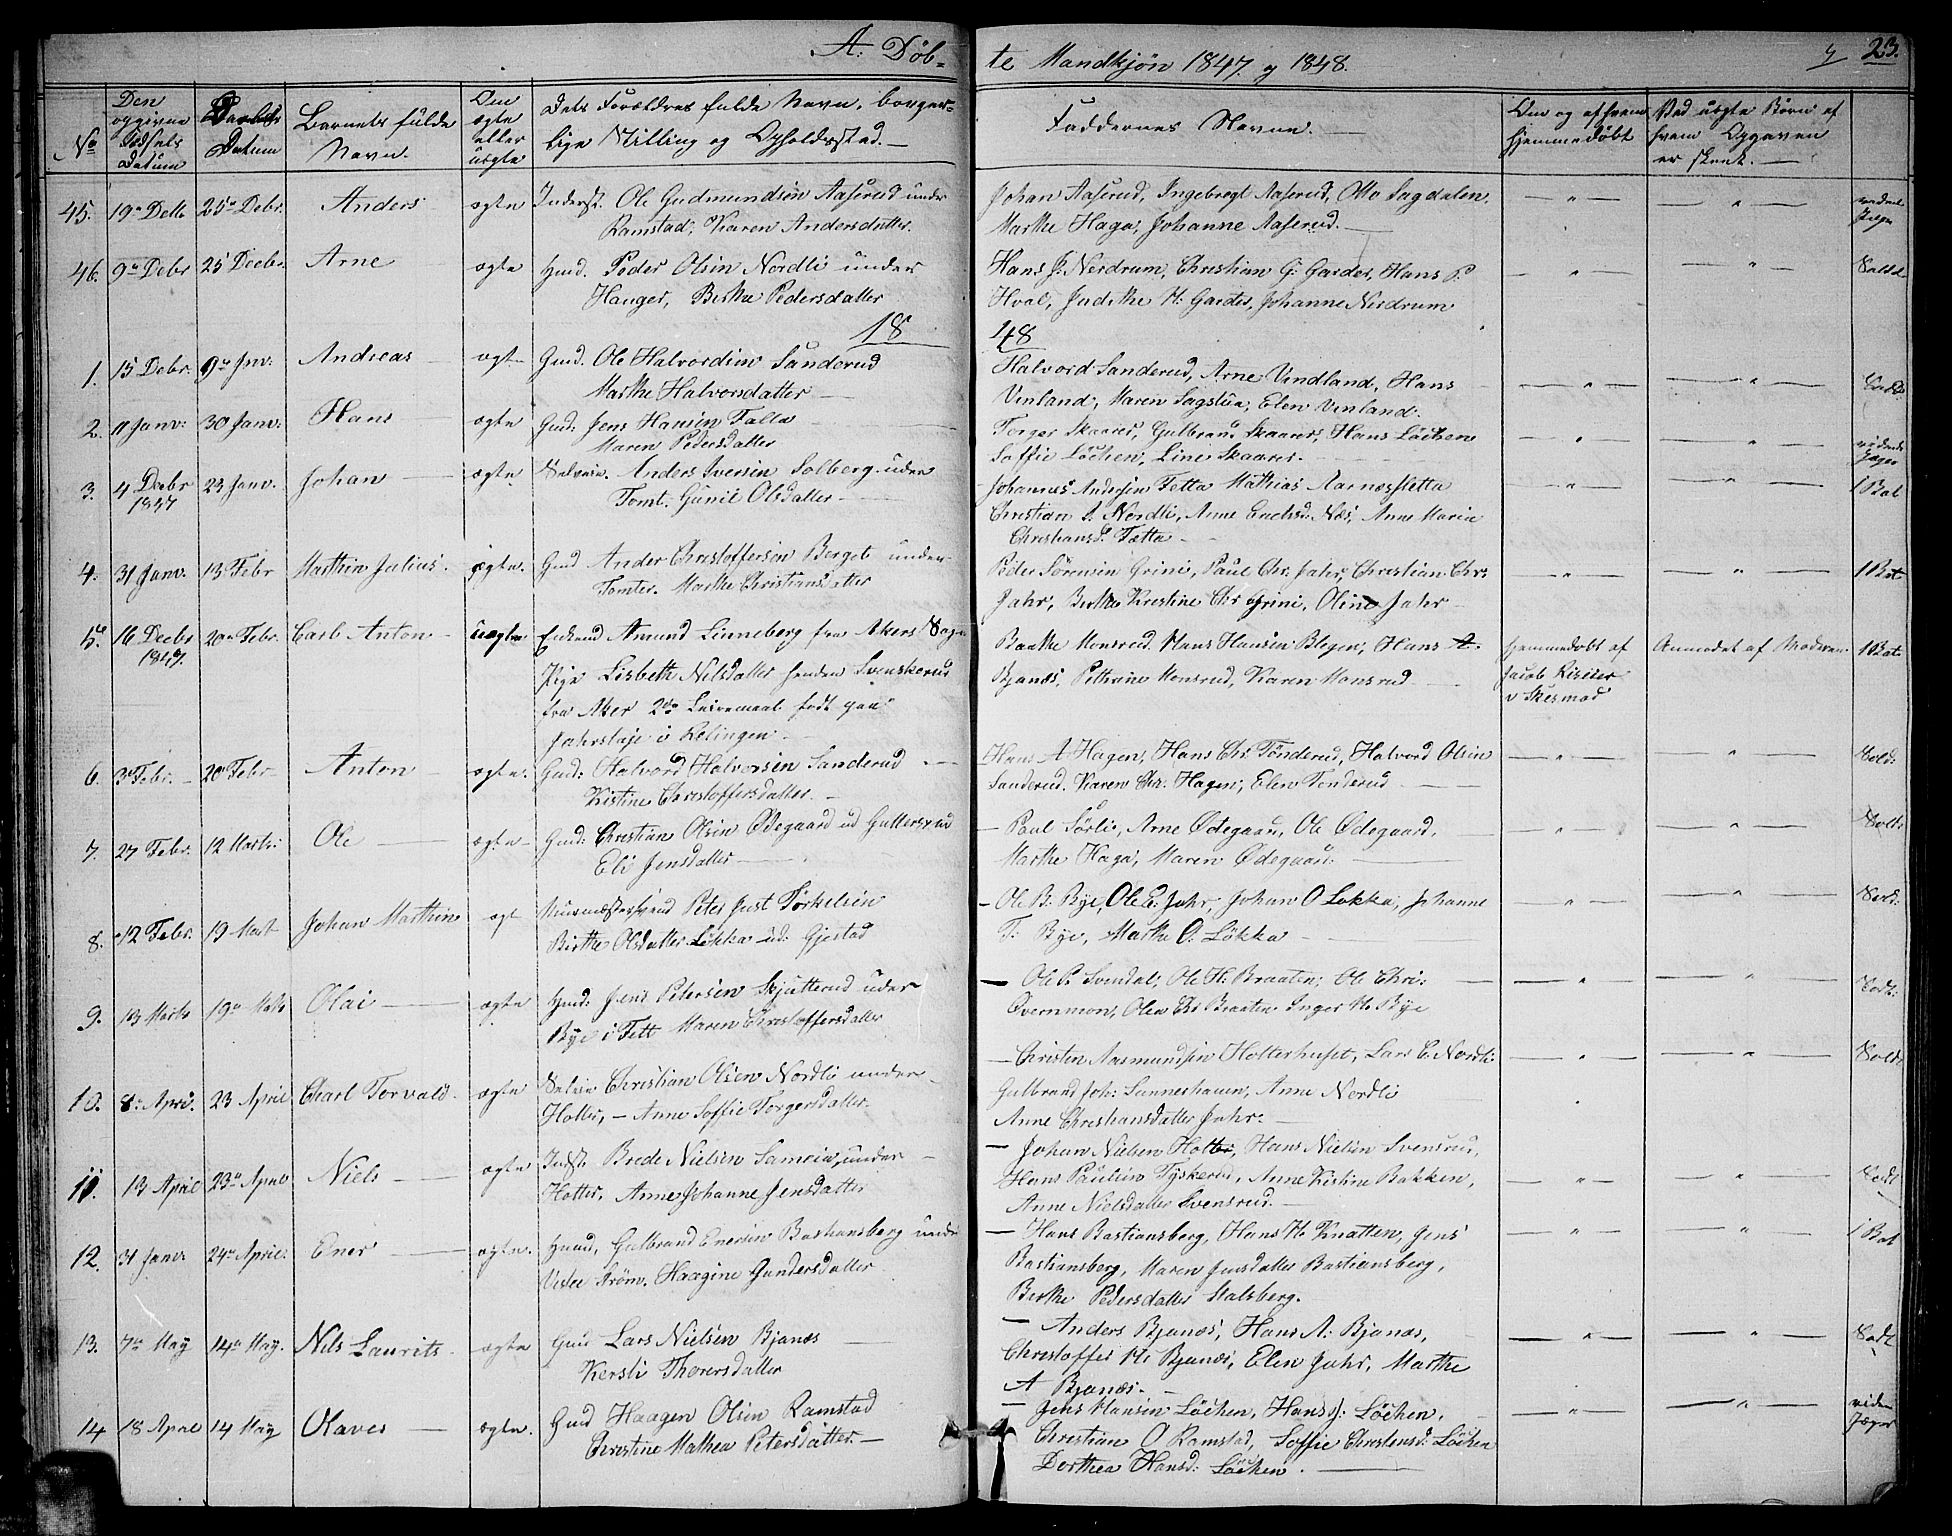 A. Døb-
te Mandkjøn 1847. og 1848.
23.
No
Den opgivne Fødsels Datum
Daabens Datum
Barnets fulde Navn.
Om ægte eller uægte
Dets Forældres fulde Navn, borger-
lige Stilling og Opholdssted.
Faddernes Navne.
Om og af hvem hjemmedøbt
Ved uægte Børn af hvem Opgaven er skeet.
45. 19de Debr. 25de Debr. Anders ægte Inderst. Ole Gudmundsen Aaserud under
Ramstad, Karen Andersdatter.
Johan Aaserud, Ingebregt Aaserud, Otto Sagdalen,
Marthe Haga, Johanne Aaserud.
46. 9de Debr 25 Decbr. Arne ægte Hmd. Peder Olsen Nordli under
Hauger, Berthe Pedersdatter
Hans J. Nerdrum, Christian G. Garder, Hans P.
Hval, Judithe H. Garder, Johanne Nerdrum
1848
1. 15 Debr. 9de Jnv. Andreas ægte Gmd. Ole Halvordsen Sanderud
Marthe Halvorsdatter
Halvord Sanderud, Arne Vindland, Hans
Vinland, Maren Sagstua, Elen Vinland.
2. 11 Janv: 30 Janv: Hans ægte Gmd: Jens Hansen Falla
Maren Pedersdatter
Torger Skaarer, Gulbrand Skaarer, Hans Löchen
Soffie Löchen, Line Skaarer.
3. 4 Decbr 1847 23 Janv. Johan ægte Selveier. Anders Iversen Solberg under
Tomt. Gunil Olsdatter
Johannes Andersen Tetta Mathias Aarnæssletta
Christian A. Nordli, Anne Enelsd. Næs, Anne Marie
Christiansd. Tætta
1 Bat
4. 31 Janv. 13 Febr Marthin Julius. ægte. Gmd Ander Christoffersen Berget under
Tomter. Marthe Christiansdatter
Peder Sörensen Grini, Paul Chr. Jahr, Christian Chr.
Jahr, Berthe Kirstine Chr Grini, Oline Jahr
1 Bat
5. 16 Decbr 1847. 20de Febr. Carl Anton uægte Enkemd Amund Linneberg fra Akers Sogn
Pige Lisbeth Nilsdatter henden Svenskerud
fra Aker 2det Leiermaal født paa
Jahrsløje i Relingen
Baake Monsrud, Hans Hansen Blegen, Hans A.
Bjanæs, Pethrine Monsrud, Karen Monsrud
hjemmedøbt af
Jacob Risiter
v Skesmod
Anmodet af Moderen
1 Bat
6. 3 Febr. 20de Febr Anton ægte. Gmd: Halvord Halvorsen Sanderud
Kistine Christoffersdatter
Hans A Hagen, Hans Chr. Tönderud, Halvord Olsen
Sanderud, Karen Chr. Hagen, Elen Tonderud
Sold:
7. 27 Febr. 12 Marts: Ole ægte Gmd: Christian Olsen Ødegaard ud Guttersrud
Eli Jensdatter
Paul Sörli, Arne Ødegaard, Ole Ødegaard,
Marthe Haga, Maren Ødegaard.
8. 12 Febr. 19 Mart Johan Marthin ægt Muurmestersvend Peter Just Törkelsen
Birthe Olsdatter Løkka ud: Gjestad
Ole B. Bye, Ole E. Jahr, Johan O Løkka, Johanne
T. Bye, Marthe O. Løkka
9. 13 Marts 19de Mats Olai ægte Hmd: Jens Petersen Skjatterud under
Bye i Fett Maren Christoffersdatter
Ole P. Svendal, Ole H. Braaten, Ole Chri.
Overnmon, Olea Chr Braaten Inger H. Bye
10. 8de April. 23 April Charl Torvald. ægte Selvei Christian Olsen Nordli under
Holter, Anne Soffie Torgersdatter
Christen Aasmundsen Holterhuset, Lars C. Nordli
Gulbrand Joh: Sunneshauen, Anne Nordli
Anne Christiansdatter Jahr.
11. 13 April 23de April Niels ægte Indst. Brede Nielsen Sameia under
Holter, Anne Johanne Jensdatter
Johan Nielsen Holter, Hans Nielsen Svensrud,
Hans Paulsen Tyskerud, Anne Kistine Bakken,
Anne Nielsdatter Svensrud.
12. 31 Janv 24de April. Ener ægte. Hmd, Gulbrand Enersen Bashansberg under
Vestre Strøm. Haagine Gundersdatter
Hans Bastiansberg, Hans H. Knatten, Jens
Bastiansberg, Maren Jensdatter Bastiansberg,
Berthe Pedersdatter Stalsberg.
1 Bat
13. 7de May 14de May. Nils Laurits ægte Gmd Lars Nielsen Bjanæs
Kersti Thorersdatter
Anders Bjanæs, Hans A. Bjanæs,
Christoffer H. Bjanæs, Elen Jahr, Marthe
A Bjanæs.
14 18 April 14 May Olaves ægte. Gmd Haagen Olsen Ramstad
Christine Mathea Petersdatter.
Jens Hansen Löchen, Hans J. Löchen,
Christian O Ramstad, Soffie Christensd: Löchen
Dorthea Hansd: Löchen.